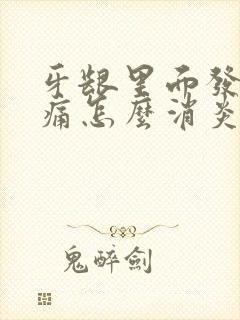 牙龈里面發
痛怎麼消炎
鬼醉劍